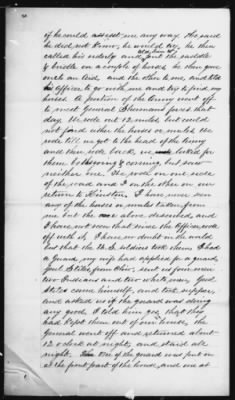 of he would assist me any way. He said
he did not know, he would try, he then
called his orderly and told him to put the saddle
& bridle on a couple of horses he then gave
me one and the other to me, and told
his Officer to go with me and try to find my
horses. A portion of the Army went off
to meet General Sherman's forces that
day. We rode out 12 miles but could
not find either the horses or mules. We
rode till we got to the head of the Army
and then rode back, we looked for
them both going & coming, but saw
neither one. He rode on one side
of the road and I on the other on our
return to Kinston. I have never seen
any of the horses or mules taken from
me but the one above described, and
I have not seen that since the Officer rode
off with it. I have no doubt in the world
but that the U.S. soldiers took them. I had
a Guard, my wife had applied for a guard,
Genl States from Ohio, sent us four men
two Indians and two white men, Genl
States came himself, and took supper,
and asked us if the guard was doing
any good, I told him yes, that they
had kept them out of our house, the
General went off and returned about
12 o clock at night, and staid all
night. One of the guard was put on
at the front part of the house, and one at